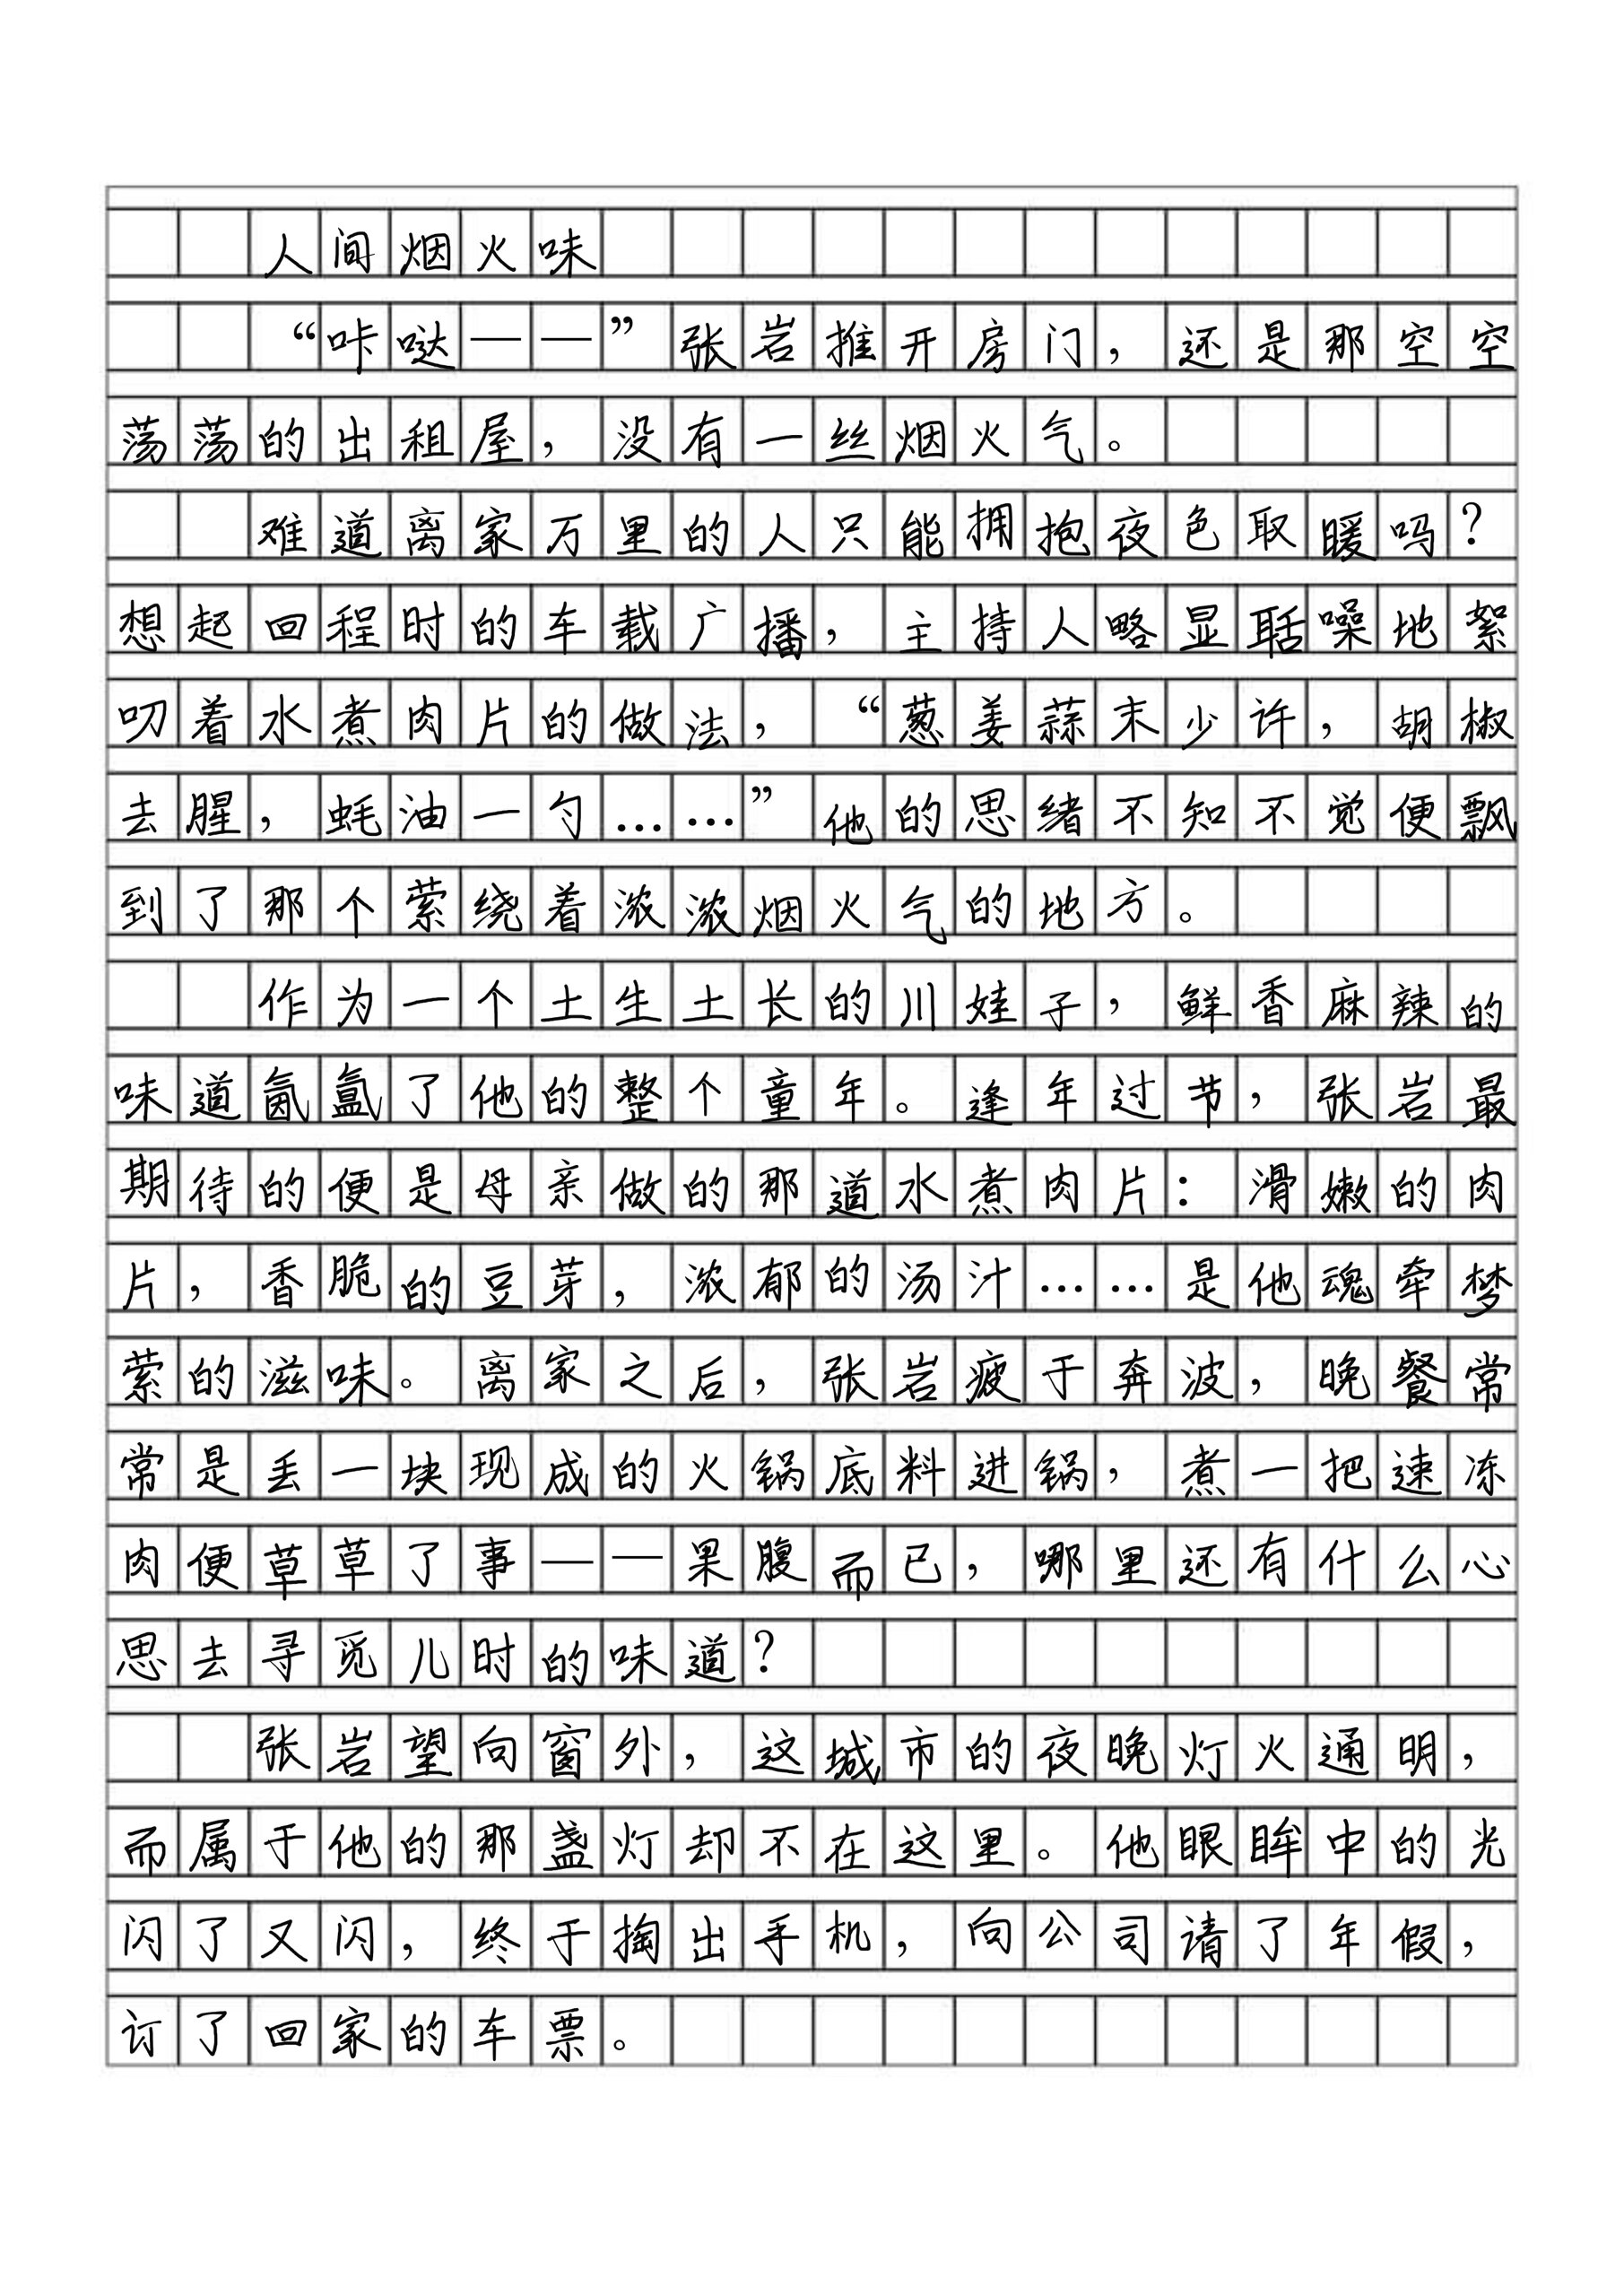 人间烟火味
“咔哒——”张岩推开房门，还是那空空
荡荡的出租屋，没有一丝烟火气。
难道离家万里的人只能拥抱夜色取暖吗？
想起回程时的车载广播，主持人略显聒噪地絮
叨着水煮肉片的做法，“葱姜蒜末少许，胡椒
去腥，蚝油一勺……”他的思绪不知不觉便飘
到了那个萦绕着浓浓烟火气的地方。
作为一个土生土长的川娃子，鲜香麻辣的
味道氤氲了他的整个童年。逢年过节，张岩最
期待的便是母亲做的那道水煮肉片：滑嫩的肉
片，香脆的豆芽，浓郁的汤汁……是他魂牵梦
萦的滋味。离家之后，张岩疲于奔波，晚餐常
常是丢一块现成的火锅底料进锅，煮一把速冻
肉便草草了事——果腹而已，哪里还有什么心
思去寻觅儿时的味道？
张岩望向窗外，这城市的夜晚灯火通明，
而属于他的那盏灯却不在这里。他眼眸中的光
闪了又闪，终于掏出手机，向公司请了年假，
订了回家的车票。